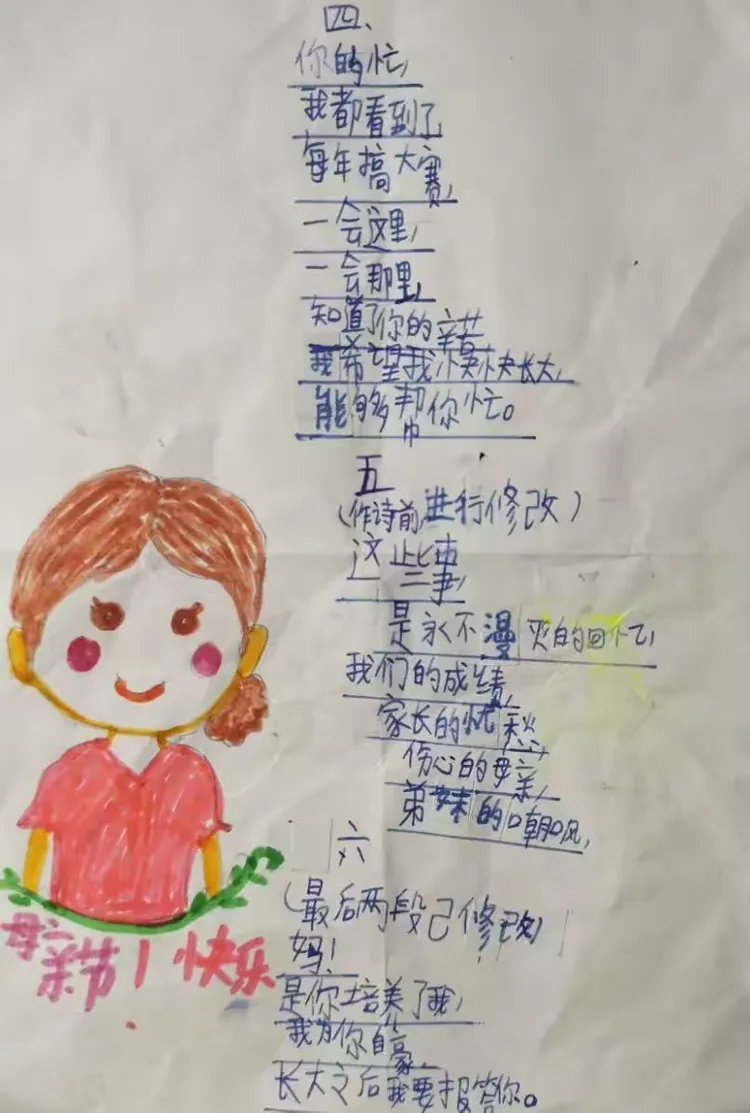 四、
你的忙，
我都看到了
每年搞大赛，
一会这里，
一会那里，
知道了你的辛苦
我希望我快快长大，
能够帮你忙。
五
（作诗前，进行修改）
这些事，
是永不漫灭的回忆，
我们的成绩，
家长的忧愁，
伤心的母亲，
弟妹的嘲风，
六
（最后两段已修改）
妈！
是你培美了我，
我为你自豪，
长大之后我要报答你。
母亲节！快乐